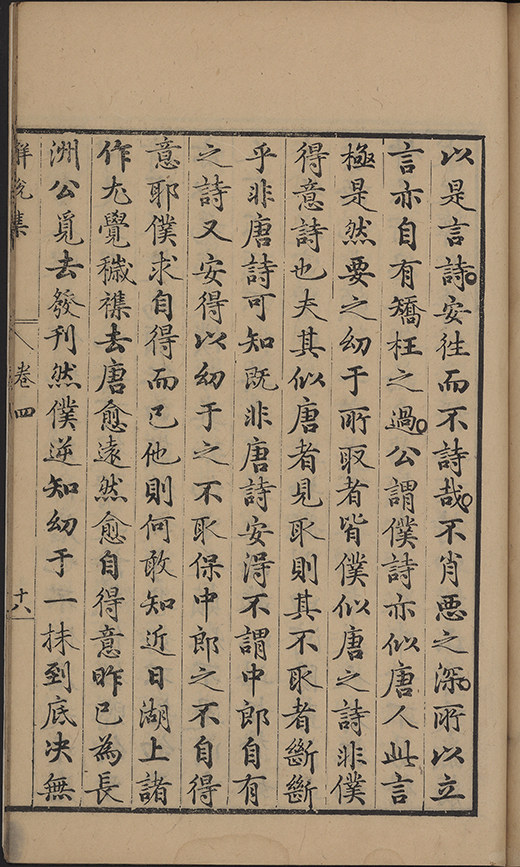 以是言詩安徃而不詩哉不肖惡之深所以立
言亦自有矯枉之過公謂僕詩亦似唐人此言
極是然要之幼于所取者皆僕似唐之詩非僕
得意詩也夫其似唐者見取則其不取者斷斷
乎非唐詩可知既非唐詩安淂不謂中郎自有
之詩又安得以幼于之不取保中郎之不自得
意耶僕求自得而已他則何敢知近日湖上諸
作尤覺穢襍去唐愈遠然愈自得意昨已為長
洲公覓去發刊然僕逆知幼于一抹到底决無
解脫集
卷四
十八